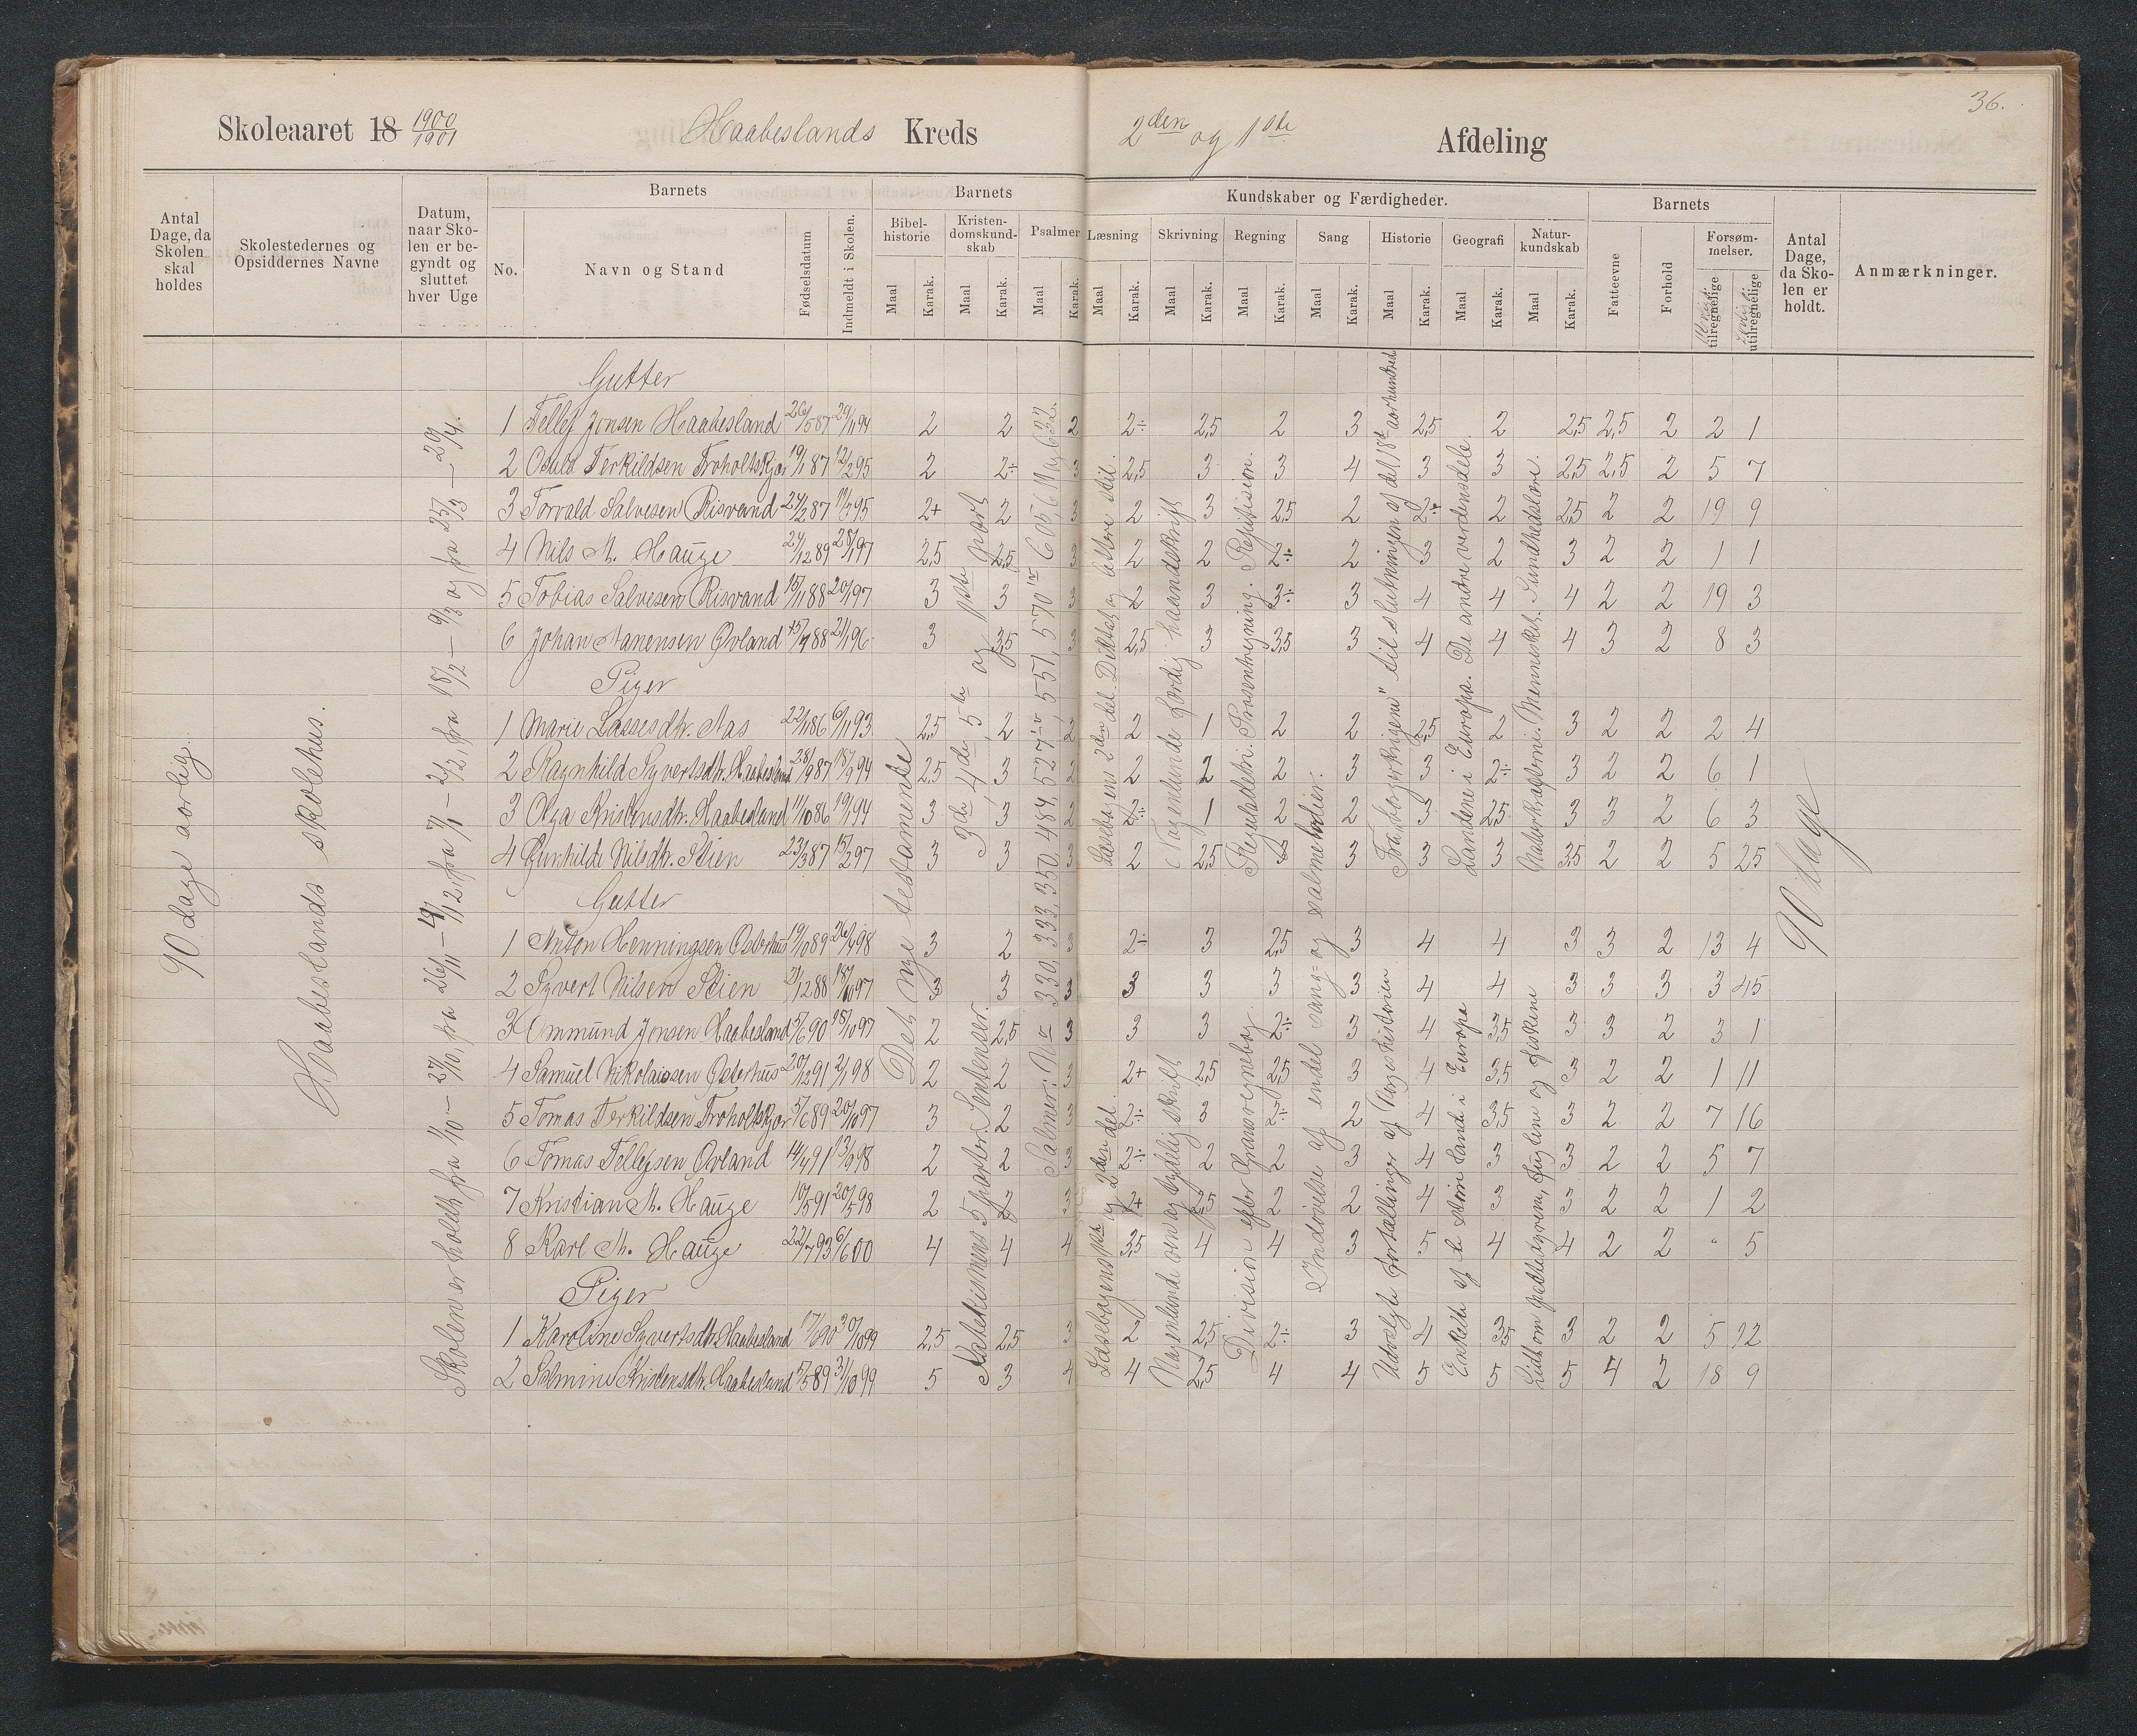 36.
Skoleaaret 18 1900/1901 Haabeslands Kreds 2den og 1ste Afdeling
Antal Dage, da Skolen skal holdes
Skolestedernes og Opsiddernes Navne
Datum, naar Skolen er begyndt og sluttet hver Uge
Barnets
No.
Navn og Stand
Fødselsdatum
Indmeldt i Skolen.
Barnets Kundskaber og Færdigheder.
Bibelhistorie Maal Karak.
Kristendomskundskab Maal Karak.
Psalmer Maal Karak.
Læsning Maal Karak.
Skrivning Maal Karak.
Regning Maal Karak.
Sang Maal Karak.
Historie Maal Karak.
Geografi Maal Karak.
Naturkundskab Maal Karak.
Barnets
Fatteevne
Forhold
Forsømmelser.
tilregnelige
utilregnelige
Antal Dage, da Skolen er holdt.
Anmærkninger.
90 dage aarlig.
Haabeslands skolehus.
Skolen er holdt fra 1/10 – 27/10, fra 26/11 – 19/12, fra 7/1 – 2/2, fra 18/2 – 9/3 og fra 25/3 – 20/4.
Gutter
1 Tellef Jonsen Haabesland 26/5 87 29/1 94 2 2 2 2÷ 2,5 2 3 2,5 2 2,5 2,5 2 2 1
2 Osuld Terkildsen Troholtskjær 19/1 87 12/2 95 2 2÷ 3 2,5 3 3 4 3 3 2,5 2,5 2 5 7
3 Torvald Salvesen Risvand 24/2 87 2+ 2 3 2 3 2,5 2 2÷ 2 2,5 2 2 19 9
4 Nils M. Hauge 24/12 89 28/1 97 2,5 2,5 3 2 2 2÷ 2 3 2 3 2 2 1 1
5 Tobias Salvesen Risvand 15/11 88 20/1 97 3 3 3 2 3 3÷ 3 4 4 4 2 2 19 3
6 Johan Aanensen Øvland 88 21/1 96 3 3,5 3 2,5 3 3,5 3 4 4 4 3 2 8 3
Piger
1 Marie Lassesdtr. Aas 22/1 86 6/11 93 2,5 2 2 2 1 2 2 2,5 2 3 2 2 2 4
2 Ragnhild Syvertsdtr. Haabesland 28/9 87 18/9 94 2,5 3 2 2 2 2 3 3 2÷ 3 2 2 6 1
3 Olga Kristensdtr. Haabesland 11/10 86 19/1 94 3 3 2 2÷ 1 2 2 3 2,5 3 3 2 6 3
4 Gunhilde Nilsdtr. Stien 23/3 87 15/2 97 3 3 3 2 2,5 3 3 3 3 3,5 2 2 5 25
Gutter
1 Anton Henningsen Osterhus 19/10 89 26/4 98 3 2 3 2÷ 3 2,5 3 4 4 3 3 2 13 4
2 Syvert Nilsen Stien 21/12 88 18/10 97 3 3 3 3 3 3 3 4 4 3 3 3 3 45
3 Ommund Jonsen Haabesland 5/6 90 18/10 97 2 2,5 3 3 3 2÷ 3 4 3,5 3 3 2 3 1
4 Samuel Nikolaisen Osterhus 20/12 91 2/1 98 2 2 3 2+ 2,5 2,5 3 4 3,5 3 2 2 1 11
5 Tomas Terkildsen Troholtskjær 5/6 89 20/10 97 3 2 3 2÷ 3 2÷ 2 4 3,5 3 2 2 7 16
6 Tomas Tellefsen Øvland 14/4 91 13/9 98 2 2 3 2÷ 2 2 3 4 3 3 2 2 5 7
7 Kristian M. Hauge 10/5 91 20/5 98 2 2 3 2+ 2,5 2 2 4 3 3 2 2 1 2
8 Karl M. Hauge 22/7 93 6/6 00 4 4 4 3,5 4 4 3 5 4 4 2 2 " 5
Piger
1 Karoline Syvertsdtr. Haabesland 17/6 90 30/10 99 2,5 2,5 3 2 2,5 2÷ 3 4 3,5 3 2 2 5 12
2 Salmine Kristensdtr. Haabesland 5/5 89 31/10 99 5 3 4 4 2,5 4 4 5 5 5 4 2 18 9
Det nye testamente
3de, 4de, 5te og part
Katekismens 5 parter. Sentenser.
Salmer: Nr 330, 333, 350, 484, 527, 551, 570, 605, 611 og 632.
Læsebogens 2den del. Diktat og lettere stil.
Læsebogens 1ste og 2den del.
Nogenlunde færdig haandskrift
Nogenlunde øvn og tydelig skrift
Reguladetri. Prosentregning. Repitision.
Division efter regnebog
Indøvelse af endel sang- og salmemelodier.
Fra „borgerkrigene" til slutningen af det 18de aarhundred
Udvalgte fortællinger af Norgeshistorien
Landene i Europa. De andre verdensdele.
Enkelte af de store lande i Europa
Naturkræfterne. Mennesket. Sundhedslære.
Lidt om pattedyrene, fuglene og fiskene
90 dage